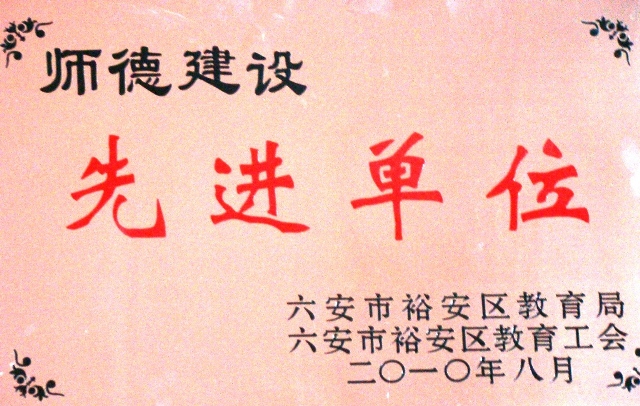 师德建设
先进单位
六安市裕安区教育局
六安市裕安区教育工会
二〇一〇年八月